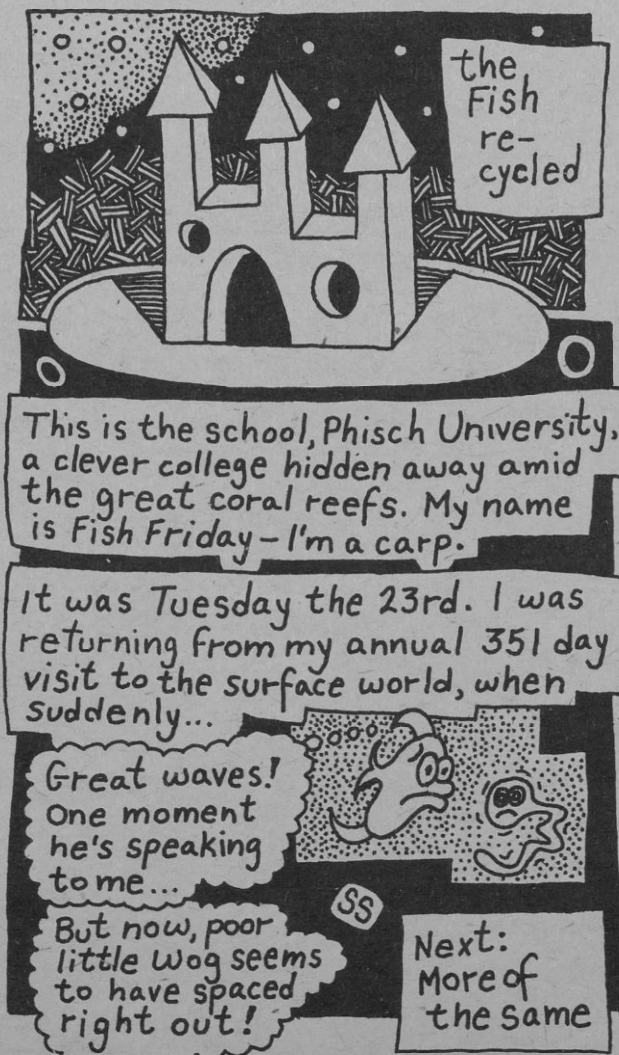 the
Fish
re-
cycled
This is the school, Phisch University,
a clever college hidden away amid
the great coral reefs. My name
is Fish Friday – I'm a carp.
It was Tuesday the 23rd. I was
returning from my annual 351 day
visit to the surface world, when
suddenly...
Great waves!
One moment
he's speaking
to me...
But now, poor
little Wog seems
to have spaced
right out!
SS
Next:
More of
the same